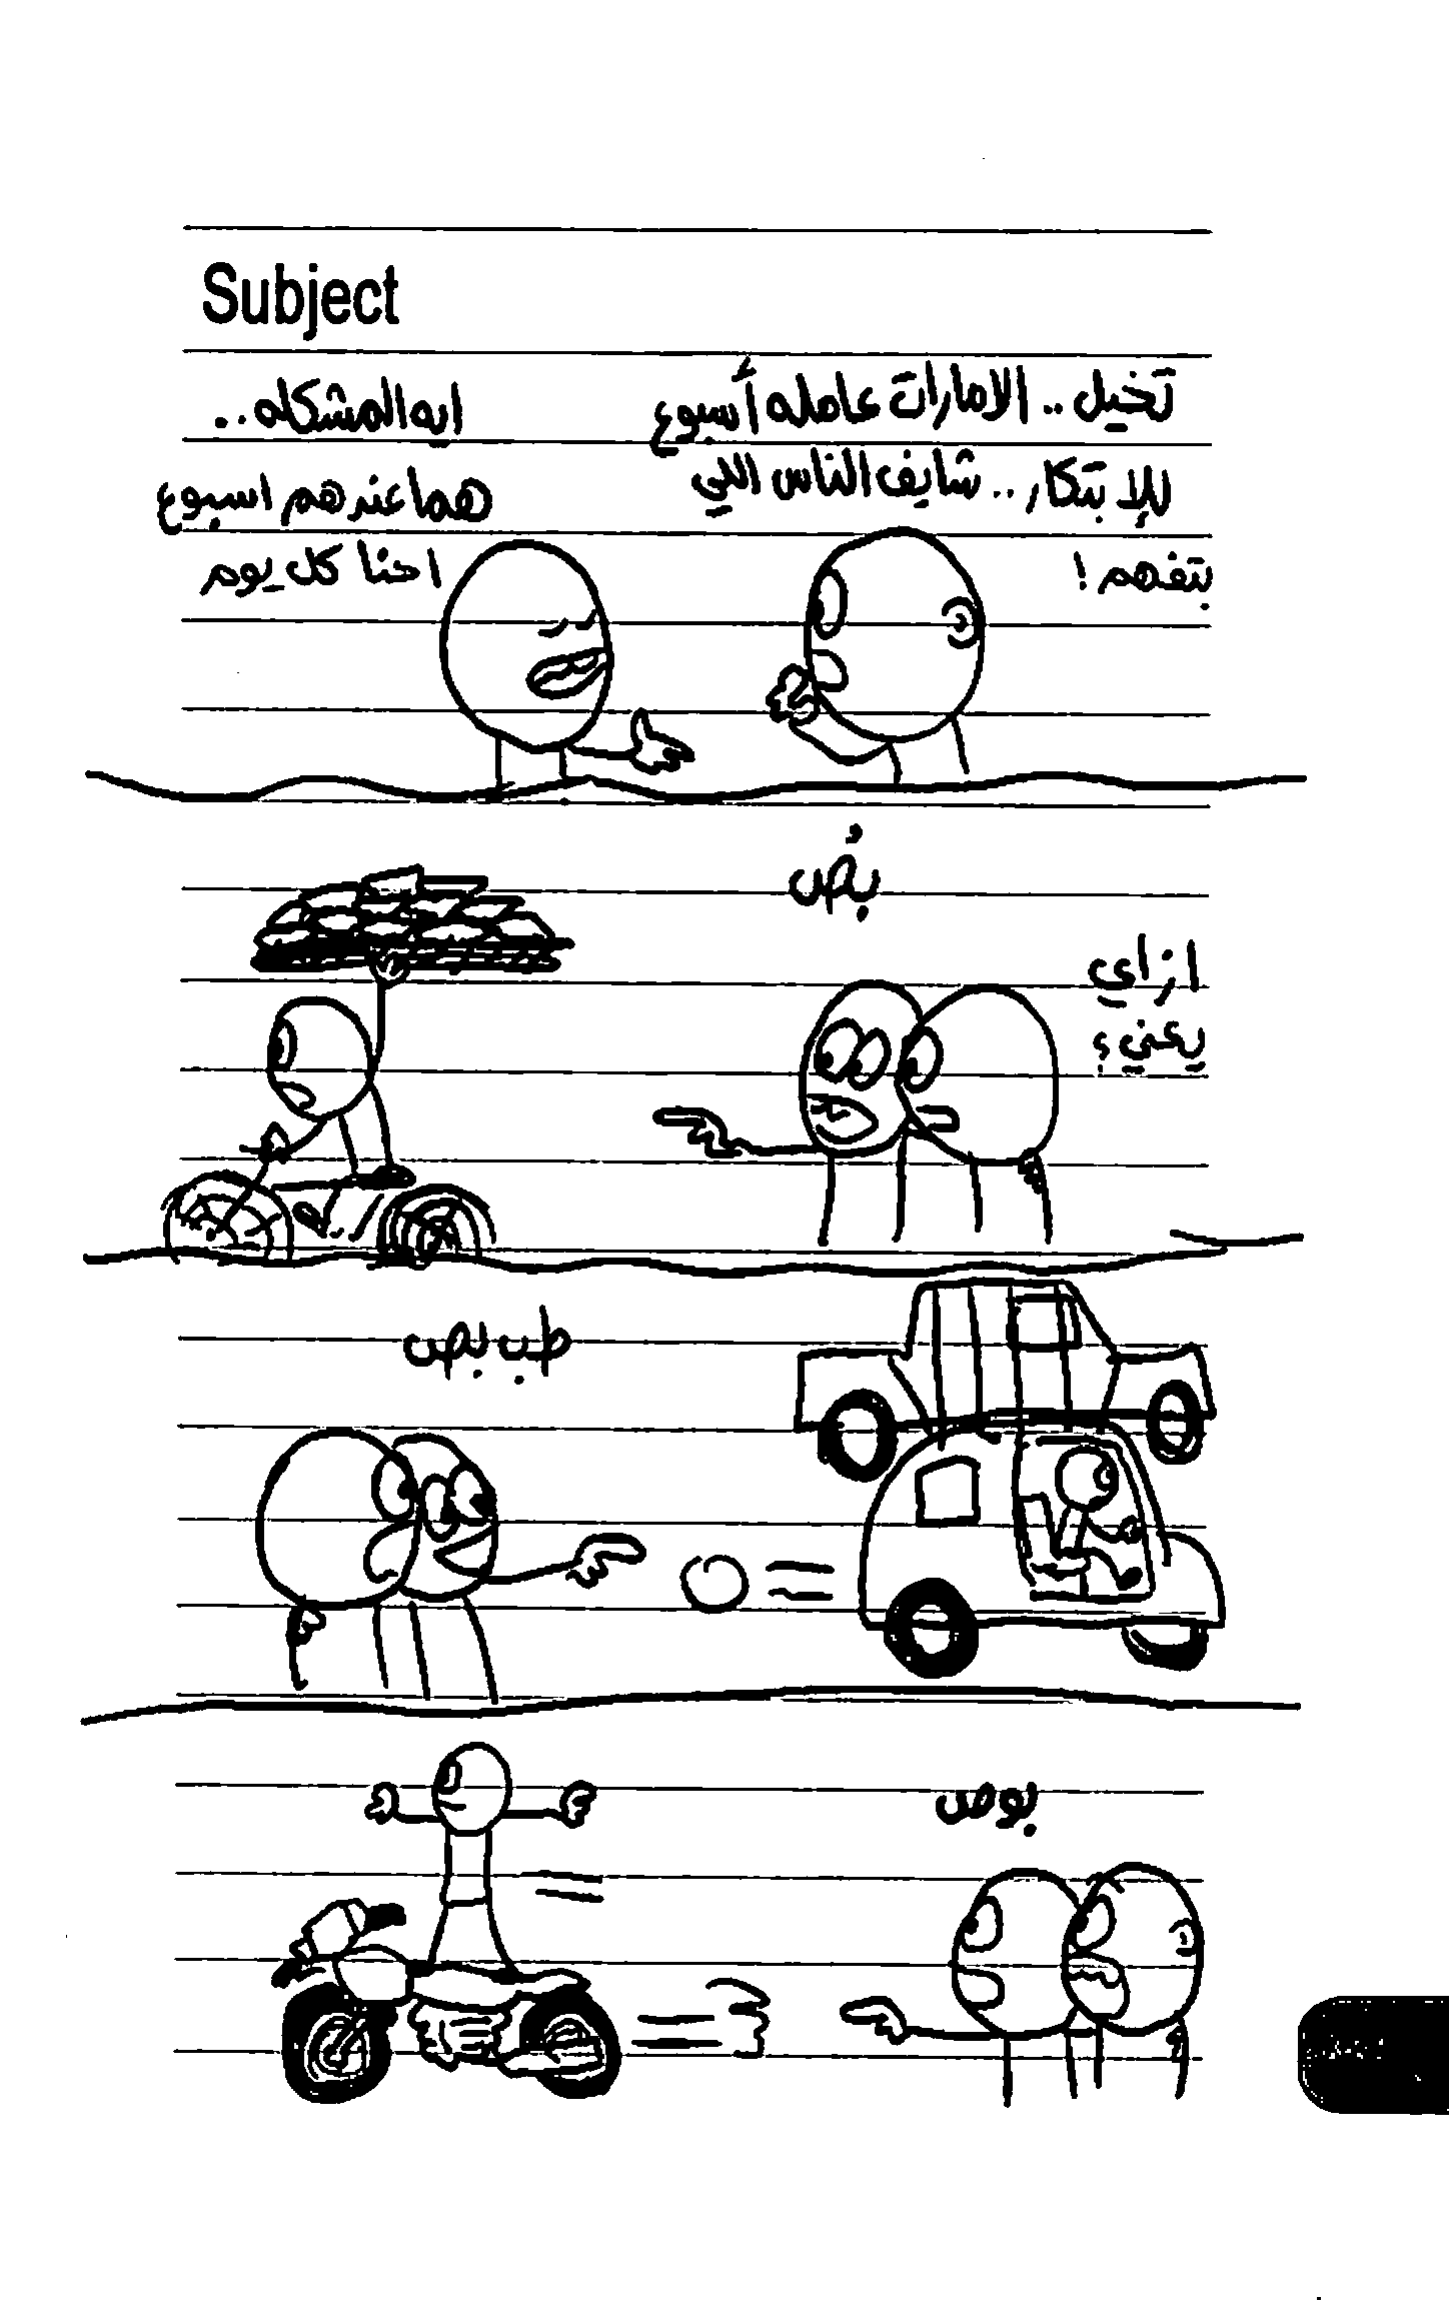 Subject
تخيل .. الامارات عامله أسبوع
للإبتكار .. شايف الناس اللي
بتفهم !
ايه المشكله ..
هما عندهم اسبوع
احنا كل يوم
بُص
ازاي
يعني ؟
طب بص
بوص